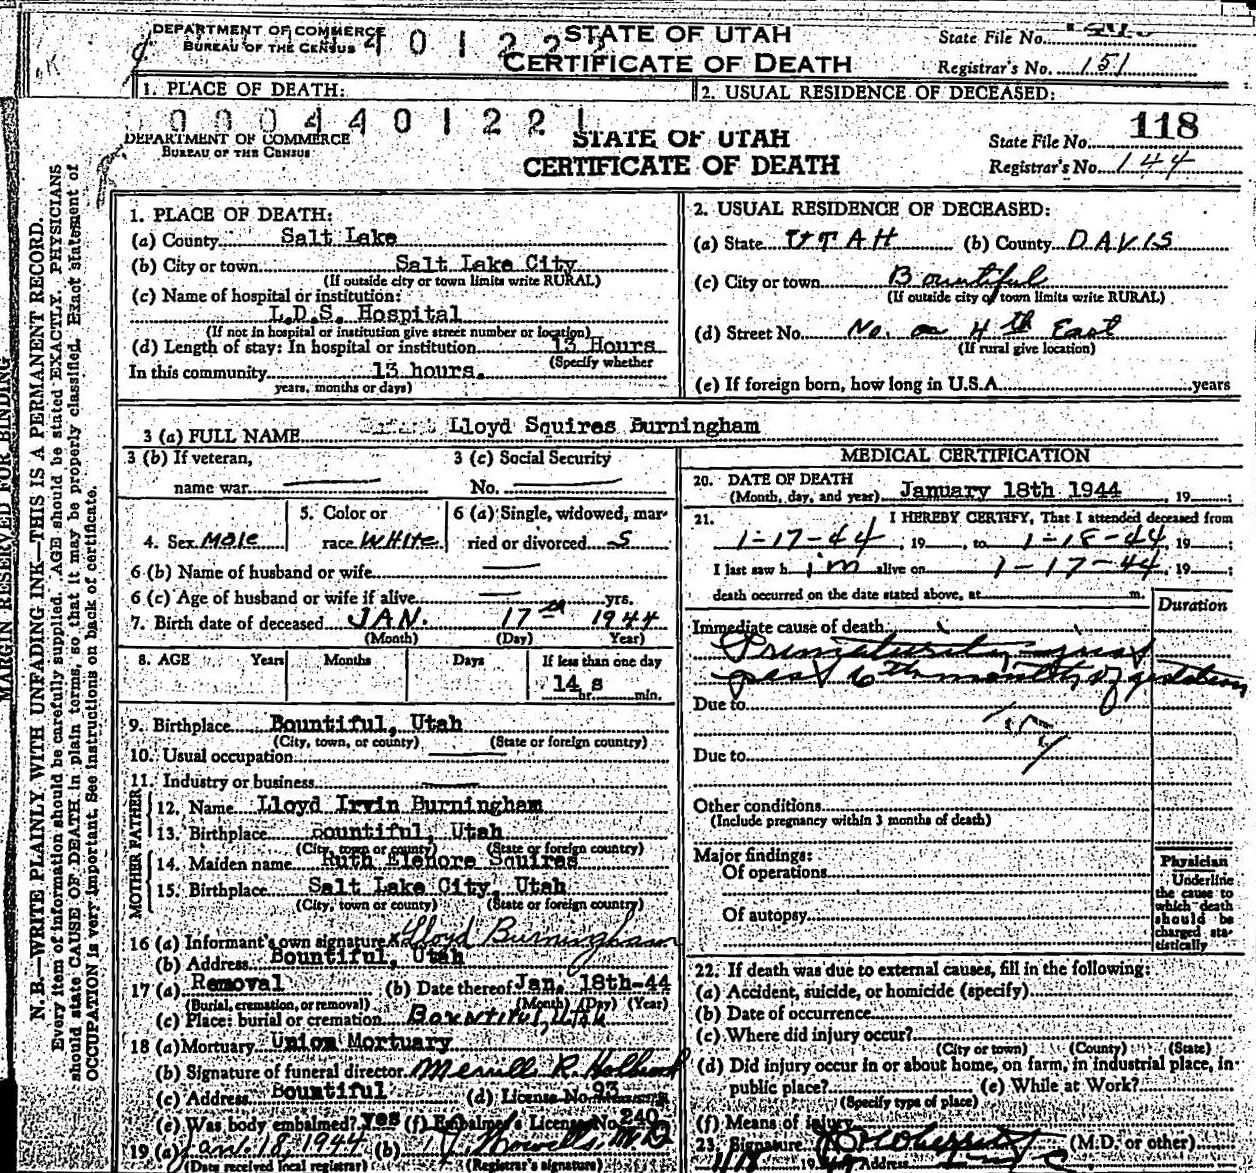 DEPARTMENT OF COMMERCE
BUREAU OF THE CENSUS
STATE OF UTAH
CERTIFICATE OF DEATH
State File No.
Registrar's No. 151
1. PLACE OF DEATH:
2. USUAL RESIDENCE OF DECEASED:
0004401221
DEPARTMENT OF COMMERCE
BUREAU OF THE CENSUS
STATE OF UTAH
CERTIFICATE OF DEATH
State File No. 118
Registrar's No. 144
MARGIN RESERVED FOR BINDING
N. B.—WRITE PLAINLY WITH UNFADING INK—THIS IS A PERMANENT RECORD.
Every item of information should be carefully supplied. AGE should be stated EXACTLY. PHYSICIANS
should state CAUSE OF DEATH in plain terms, so that it may be properly classified. Exact statement of
OCCUPATION is very important. See instructions on back of certificate.
1. PLACE OF DEATH:
(a) County Salt Lake
(b) City or town Salt Lake City
(If outside city or town limits write RURAL)
(c) Name of hospital or institution:
L.D.S. Hospital
(If not in hospital or institution give street number or location)
(d) Length of stay: In hospital or institution 13 Hours
(Specify whether
In this community 13 hours.
years, months or days)
2. USUAL RESIDENCE OF DECEASED:
(a) State UTAH (b) County DAVIS
(c) City or town Bountiful
(If outside city or town limits write RURAL)
(d) Street No. No. on 4th East
(If rural give location)
(e) If foreign born, how long in U.S.A. years
3 (a) FULL NAME Lloyd Squires Burningham
3 (b) If veteran,
name war
3 (c) Social Security
No.
4. Sex Male
5. Color or
race White
6 (a) Single, widowed, mar-
ried or divorced S
6 (b) Name of husband or wife
6 (c) Age of husband or wife if alive yrs.
7. Birth date of deceased JAN. 17th 1944
(Month) (Day) Year)
8. AGE Years Months Days If less than one day
14 hr. s min.
9. Birthplace Bountiful, Utah
(City, town, or county) (State or foreign country)
10. Usual occupation
11. Industry or business
FATHER
12. Name Lloyd Irvin Burningham
13. Birthplace Bountiful, Utah
(City, town or county) (State or foreign country)
MOTHER
14. Maiden name Ruth Elenore Squires
15. Birthplace Salt Lake City, Utah
(City, town or county) (State or foreign country)
16 (a) Informant's own signature x Lloyd Burningham
(b) Address Bountiful, Utah
17 (a) Removal (b) Date thereof Jan. 18th-44
(Burial, cremation, or removal) (Month) (Day) (Year)
(c) Place: burial or cremation Bountiful, Utah
18 (a) Mortuary Union Mortuary
(b) Signature of funeral director Merrill R. Holbrook
(c) Address Bountiful (d) License No. 93
(e) Was body embalmed? Yes (f) Embalmer's License No. 240
19 (a) Jan. 18, 1944 (b)
(Date received local registrar) (Registrar's signature)
MEDICAL CERTIFICATION
20. DATE OF DEATH
(Month, day, and year) January 18th 1944, 19 ;
21. I HEREBY CERTIFY, That I attended deceased from
1-17-44, 19 , to 1-18-44, 19 ;
I last saw h im alive on 1-17-44, 19 ;
death occurred on the date stated above, at m.
Duration
Immediate cause of death
Prematurity - just
past 6th month of gestation
Due to
Due to
Other conditions
(Include pregnancy within 3 months of death)
Major findings:
Of operations
Of autopsy
Physician
Underline
the cause to
which death
should be
charged sta-
tistically
22. If death was due to external causes, fill in the following:
(a) Accident, suicide, or homicide (specify)
(b) Date of occurrence
(c) Where did injury occur?
(City or town) (County) (State)
(d) Did injury occur in or about home, on farm, in industrial place, in
public place? (e) While at Work?
(Specify type of place)
(f) Means of injury
23. Signature (M.D. or other)
1/18 19 Address